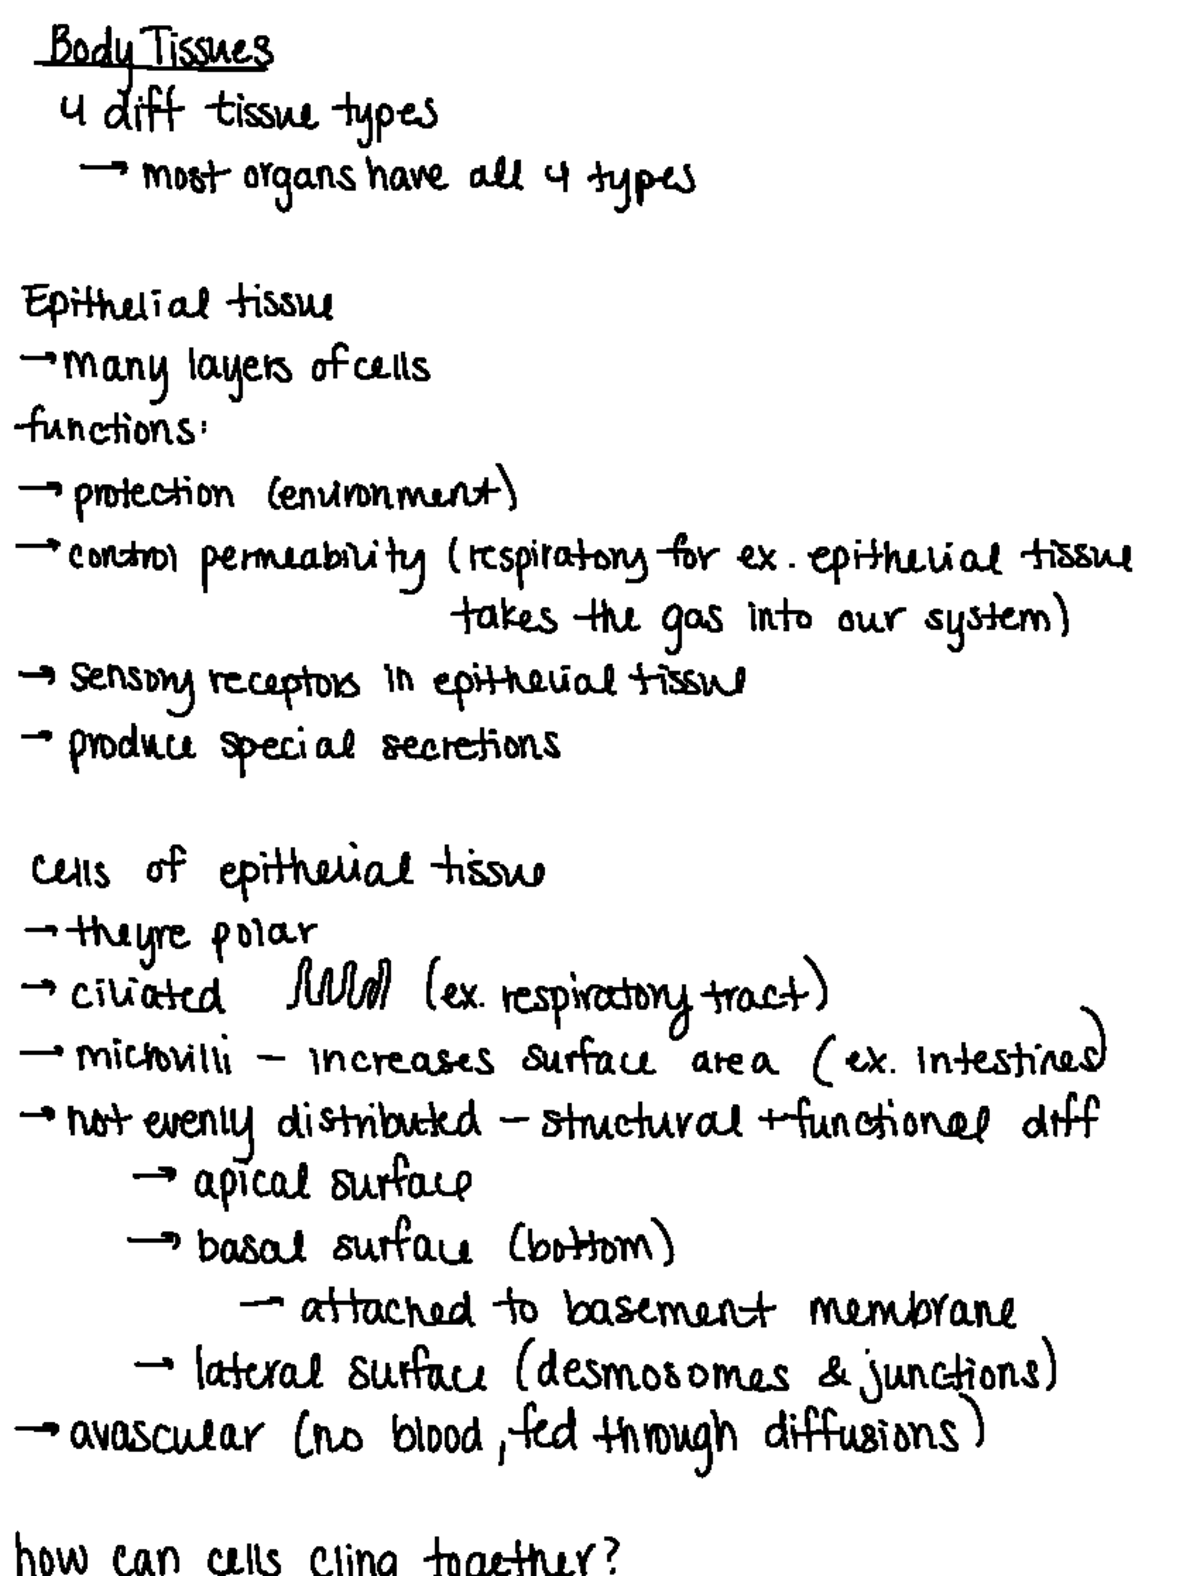 Body Tissues
4 diff tissue types
→ most organs have all 4 types
Epithelial tissue
→ many layers of cells
functions:
→ protection (environment)
→ control permeability (respiratory for ex. epithelial tissue
takes the gas into our system)
→ sensory receptors in epithelial tissue
→ produce special secretions
cells of epithelial tissue
→ theyre polar
→ ciliated (ex. respiratory tract)
→ microvilli – increases surface area (ex. intestines)
→ not evenly distributed – structural + functional diff
→ apical surface
→ basal surface (bottom)
→ attached to basement membrane
→ lateral surface (desmosomes & junctions)
→ avascular (no blood, fed through diffusions)
how can cells cling together?